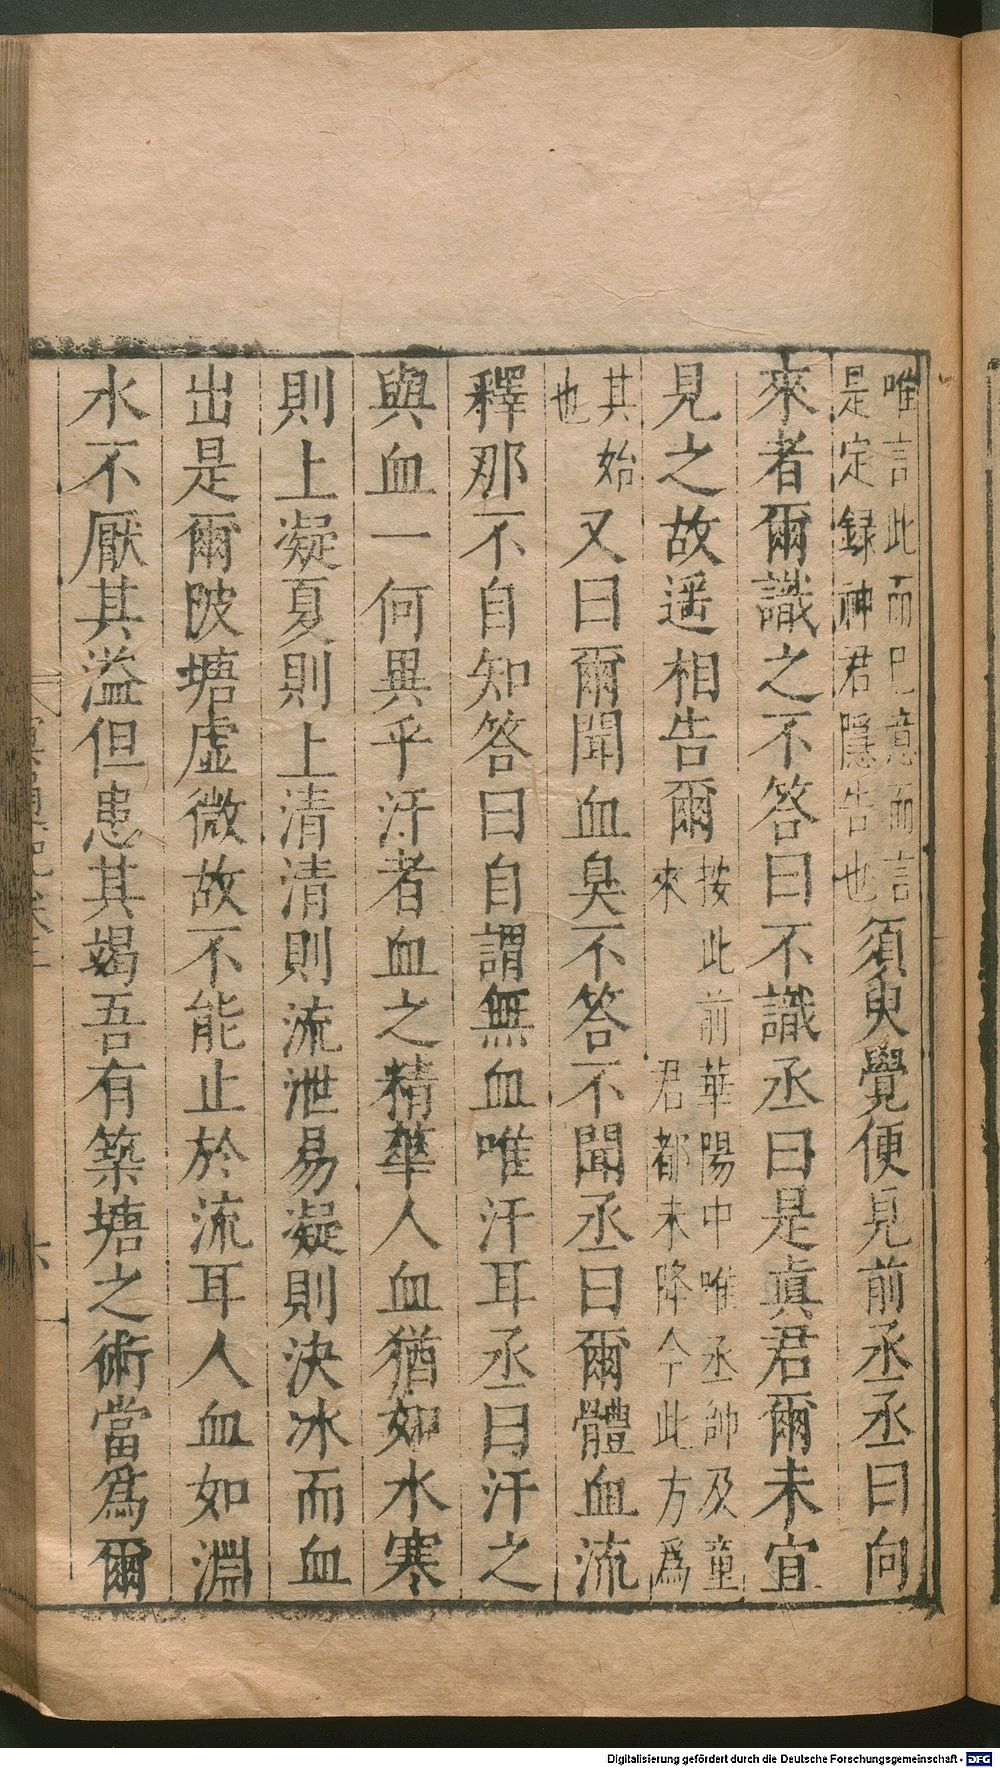 唯言此而已意而言
是定録神君隱告也
須臾覺便見前丞丞曰向
來者爾識之不答曰不識丞曰是眞君爾未宜
見之故遥相告爾
按此前華陽中唯丞帥及童
來君都未降今此方爲
其始
也
又曰爾聞血臭不答不聞丞曰爾體血流
釋那不自知答曰自謂無血唯汗耳丞曰汗之
與血一何異乎汗者血之精華人血猶如水寒
則上凝夏則上清清則流泄易凝則決冰而血
出是爾陂塘虛微故不能止於流耳人血如淵
水不厭其溢但患其竭吾有築塘之術當爲爾
六
Digitalisierung gefördert durch die Deutsche Forschungsgemeinschaft - DFG